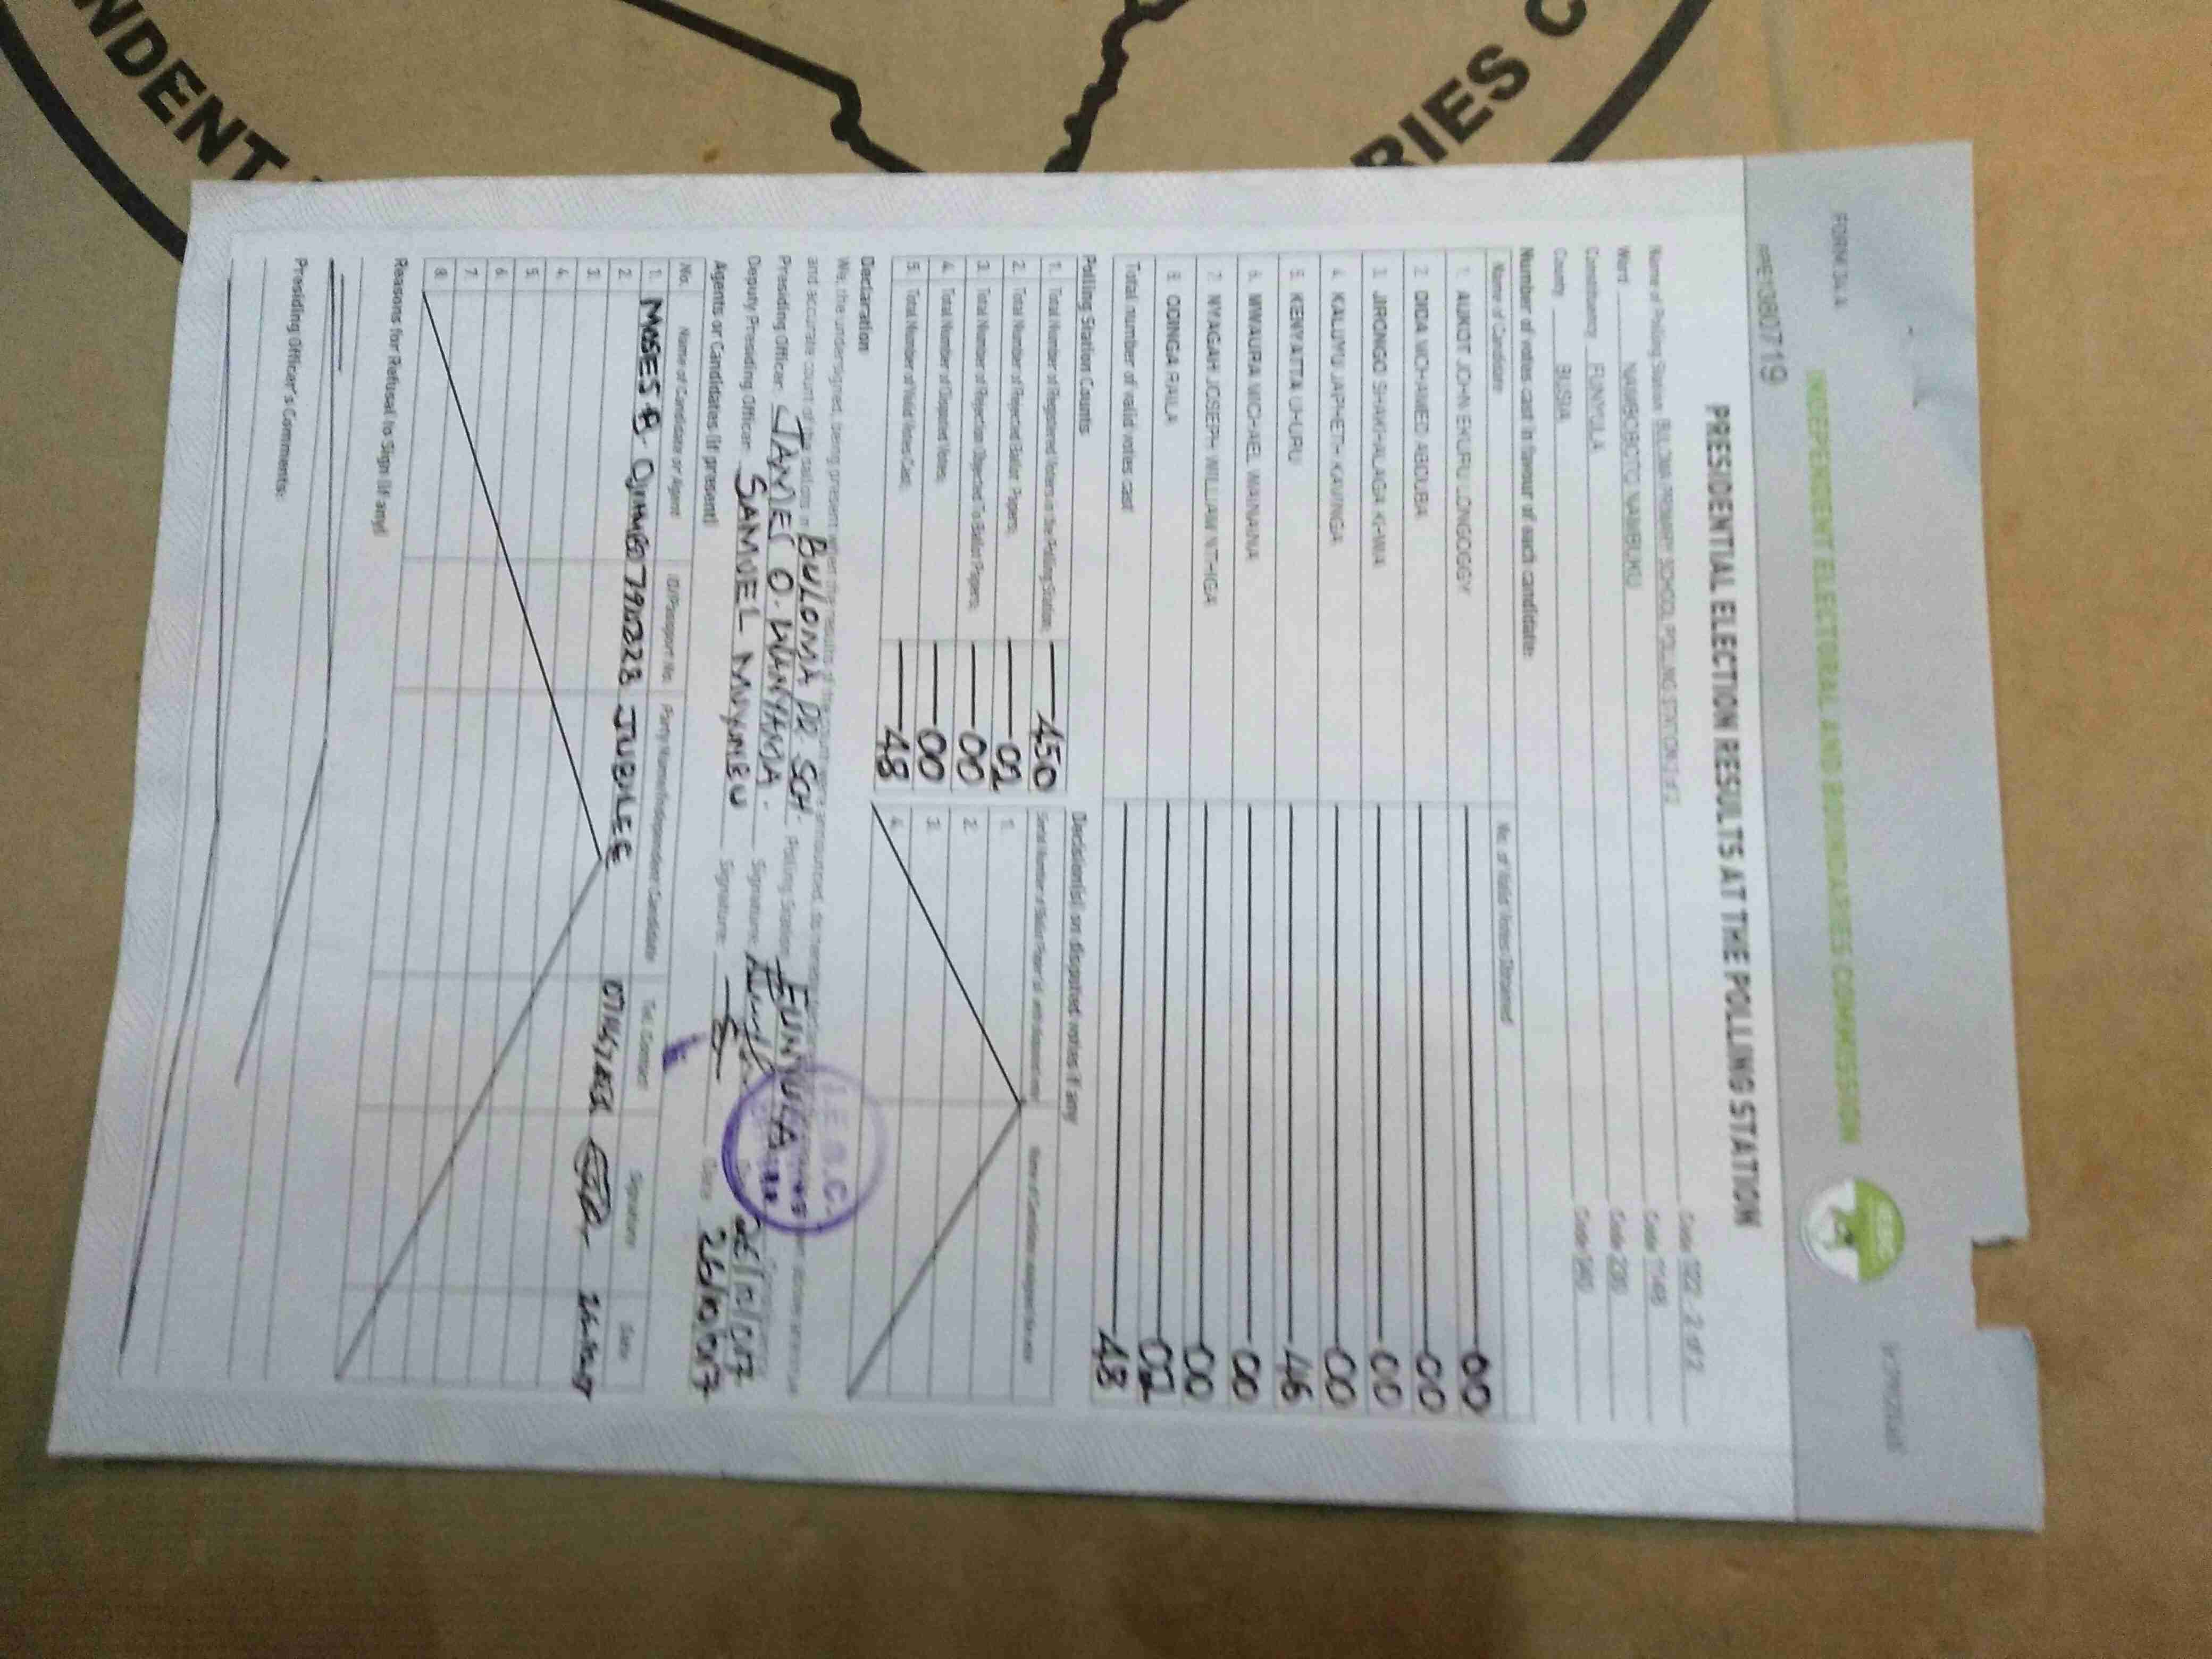 NDENT
RIES C
FORM 34 A
INDEPENDENT ELECTORAL AND BOUNDARIES COMMISSION
IEBC
PRESIDENTIAL ELECTION RESULTS AT THE POLLING STATION
Name of Polling Station BULOMA PRIMARY SCHOOL POLLING STATION 2 of 2 Code 022 - 2 of 2
Ward NAMBOBOTO NAMBUKU Code 1148
Constituency FUNYULA Code 230
County BUSIA Code 040
Number of votes cast in favour of each candidate:
Name of Candidate No. of Valid Votes Obtained
1. AUKOT JOHN EKURU LONGOGGY 00
2. DIDA MOHAMED ABDUBA 00
3. JIRONGO SHAKHALAGA KHWA 00
4. KALUYU JAPHETH KAVINGA 00
5. KENYATTA UHURU 46
6. MWAURA MICHAEL WAINAINA 00
7. NYAGAH JOSEPH WILLIAM NTHIGA 00
8. ODINGA RAILA 02
Total number of valid votes cast 48
Polling Station Counts
1. Total Number of Registered Voters in the Polling Station; 450
2. Total Number of Rejected Ballot Papers; 02
3. Total Number of Rejection Objected To Ballot Papers; 00
4. Total Number of Disputed Votes; 00
5. Total Number of Valid Votes Cast; 48
Decision(s) on disputed votes if any
1.
2.
3.
4.
Declaration
We, the undersigned, being present when the results of the count were announced, do hereby
and accurate count of the ballots in BULOMA PR SCH. Polling Station FUNYULA
Presiding Officer: JAMES O. WANYAMA. Signature: 26/10/017
Deputy Presiding Officer: SAMUEL MUYUMBU Signature: Date 26/10/017
I.E.B.C.
Agents or Candidates (if present)
No. Name of Candidate or Agent ID/Passport No. Party Name/Independent Candidate Tel. Contact Signature Date
1. MOSES B. JUBILEE
2.
3.
4.
5.
6.
7.
8.
Reasons for Refusal to Sign (if any)
Presiding Officer's Comments: